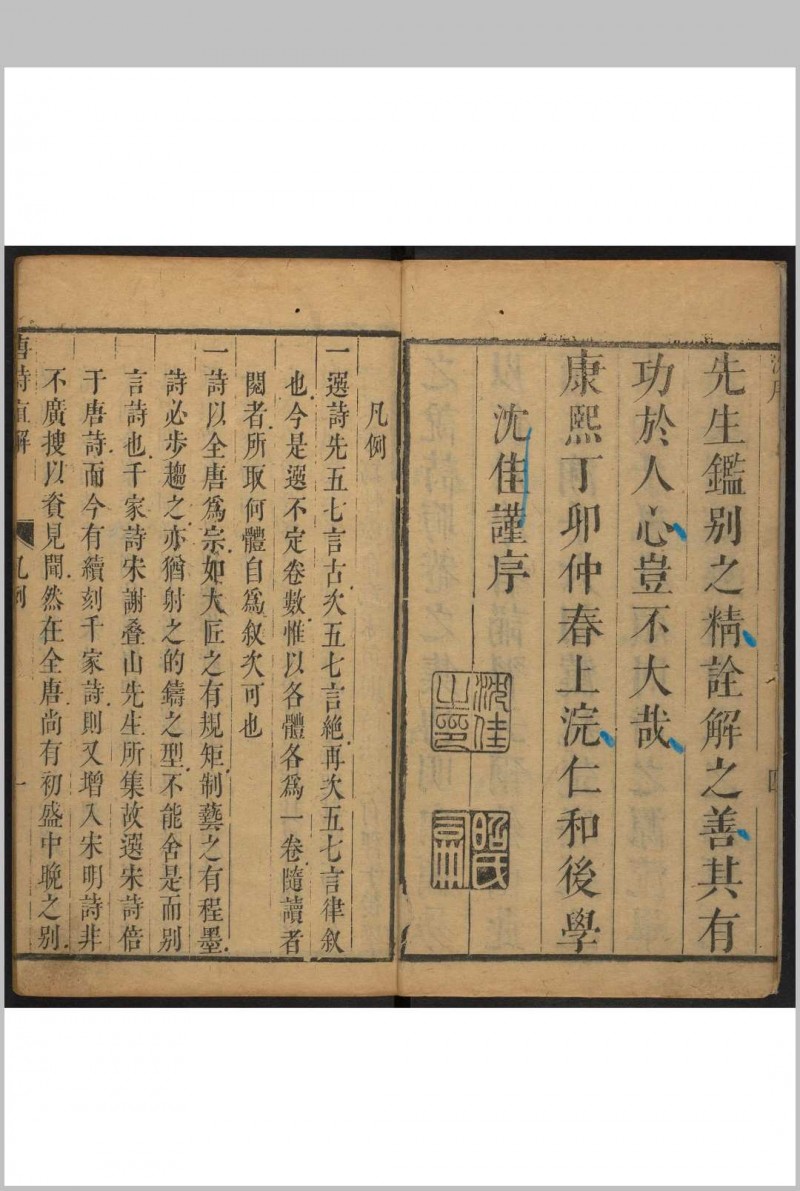 先生鑑别之精詮解之善其有
功於人心豈不大哉
康熙丁卯仲春上浣仁和後學
沈佳謹序
沈佳之印
昭氏
四
凡例
一選詩先五七言古次五七言絕再次五七言律叙
也今是選不定卷數惟以各體各爲一卷隨讀者
閱者所取何體自爲叙次可也
一詩以全唐爲宗如大匠之有規矩制藝之有程墨
詩必歩趨之亦猶射之的鑄之型不能舍是而别
言詩也千家詩宋謝叠山先生所集故選宋詩倍
于唐詩而今有續刻千家詩則又增入宋明詩非
不廣搜以資見聞然在全唐尚有初盛中晚之别
唐詩直解
凡例
一